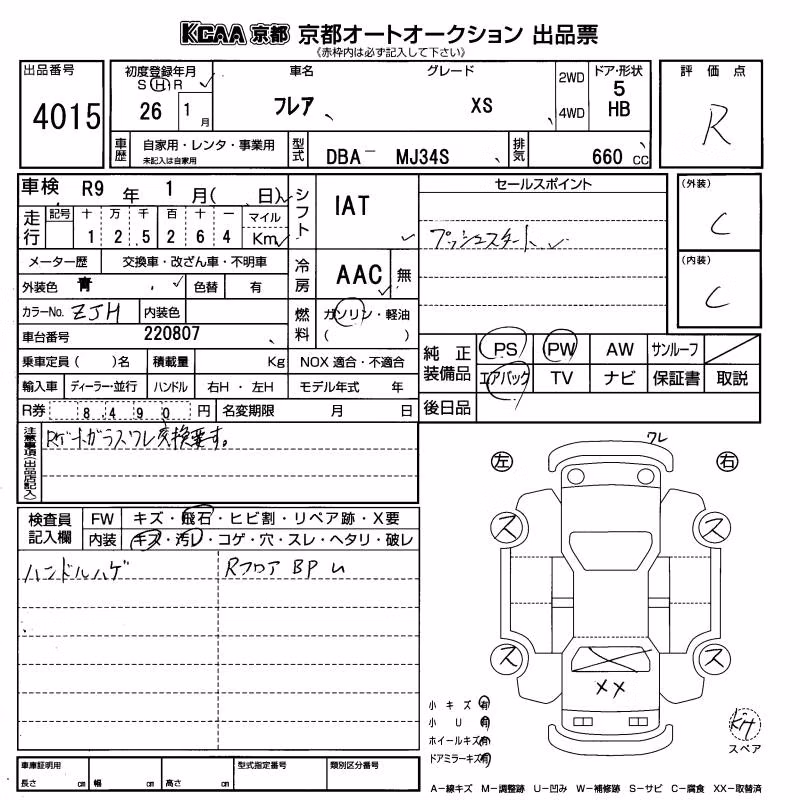 KCAA 京都 京都オートオークション 出品票
《赤枠内は必ず記入して下さい》
出品番号
4015
初度登録年月
S H R
26 1月
車名
フレア
グレード
XS
2WD
4WD
ドア・形状
5
HB
評価点
R
車歴
自家用・レンタ・事業用
未記入は自家用
型式
DBA－ MJ34S
排気
660 CC
車検 R9 年 1 月( 日)
走行
記号 十 万 千 百 十 一 マイル
1 2 5 2 6 4 Km
メーター歴 交換車・改ざん車・不明車
外装色 青 色替 有
カラーNo. ZJH 内装色
車台番号 220807
乗車定員 ( )名 積載量 Kg NOX 適合・不適合
輸入車 ディーラー・並行 ハンドル 右H・左H モデル年式 年
R券 8490 円 名変期限 月 日
シフト
IAT
冷房
AAC 無
燃料
ガソリン・軽油
( )
セールスポイント
プッシュスタート
(外装)
C
(内装)
C
純正装備品
PS PW AW サンルーフ
エアバック TV ナビ 保証書 取説
後日品
注意事項(出品店記入)
Rゲートガラスワレ交換要す。
検査員記入欄
FW キズ・飛石・ヒビ割・リペア跡・X要
内装 キズ・汚レ・コゲ・穴・スレ・ヘタリ・破レ
ハンドルハゲ
RフロアBPu
ワレ
左 右
ス ス
ス ス
XX
小キズ有
小U有
ホイールキズ有
ドアミラーキズ有
スペア
車庫証明用
長さ cm 幅 cm 高さ cm
型式指定番号
類別区分番号
A－線キズ M－調整跡 U－凹み W－補修跡 S－サビ C－腐食 XX－取替済